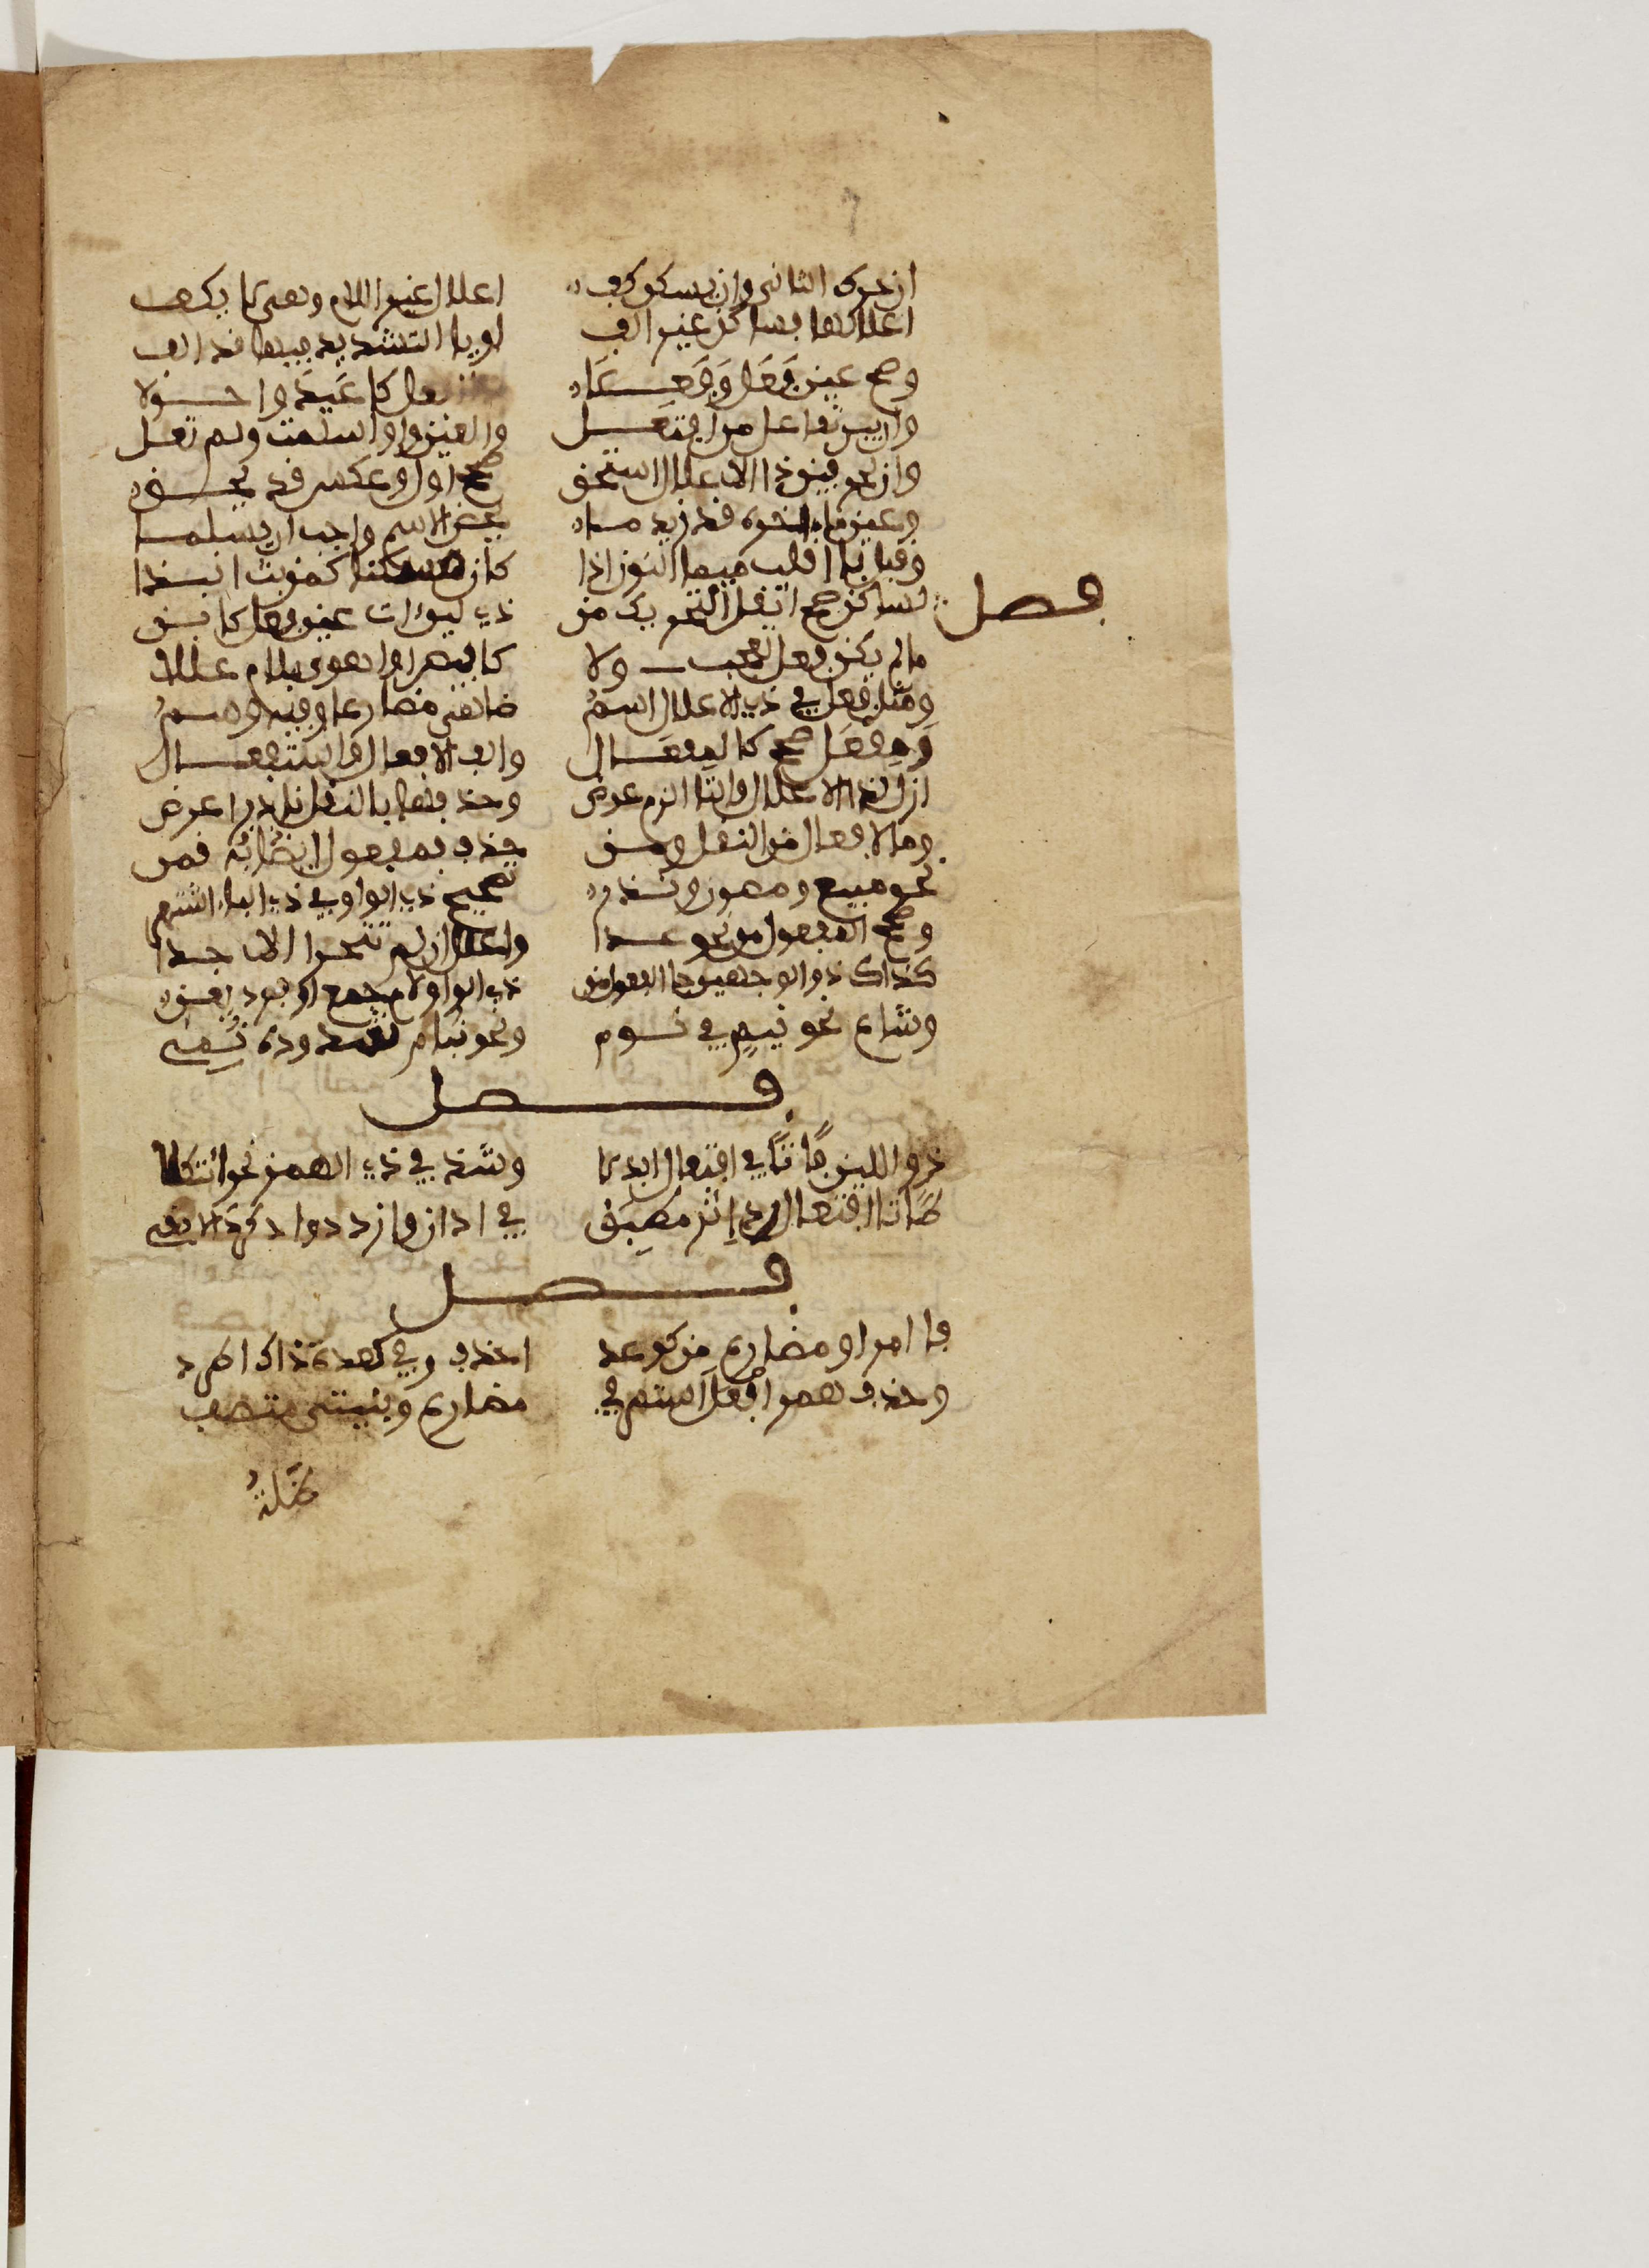 ان حرك الثاني وان سكن كف اعلال غير اللام وهي لا يكف
اعلالها بساكن غير الف او ياء التشديد فيها قد الف
وصح عين فَعَل وَفَعِلَا كاغيد واحولا
وان يبن تفاعل من افتعل والعين واو سلمت ولم تعل
وان لحرفين ذا الاعلال استحق صحح اول وعكس قد يحق
وعين ما اخره قد زيد ما يخص الاسم واجب ان يسلما
وقبل با اقلب ميما النون اذا كان مسكنا كمن بت انبذا
فصل
لساكن صح انقل التحريك من ذي لين ات عين فعل كابن
ما لم يكن فعل تعجب ولا كابيض او اهوى بلام عللا
ومثل فعل في ذي الاعلال اسمُ ضاهى مضارعا وفيه وسمُ
وَمِفْعَل صحح كالمِفعَال والف الافعال واستفعال
ازل لذا الاعلال والتا الزم عوض وحذفها بالنقل نادرا عرض
وما لافعال من النقل ومن حذف فمفعول به ايضا قمن
نحو مبيع ومصون وندر تصحيح ذي الواو وفي ذي اليا اشتهر
وصحح المفعول من نحو عدا واعلل ان لم تتحر الاجودا
كذاك ذو الوجهين جا الفعول من ذي الواو لام جمع او فرد يعن
وشاع نحو نيم في نوم ونحو نيام شذوذه نُمِي
فصل
ذو اللين فا تا في افتعال ابدلا وشذ في ذي الهمز نحو ائتكلا
طا تا افتعال رد اثر مطبق في ادان وازدد وادكر دالا بقي
فصل
فا امر او مضارع من كوعد احذف وفي كعدة ذاك اطرد
وحذف همز افعل استمر في مضارع وبنيتي متصف
ظَلْتُ